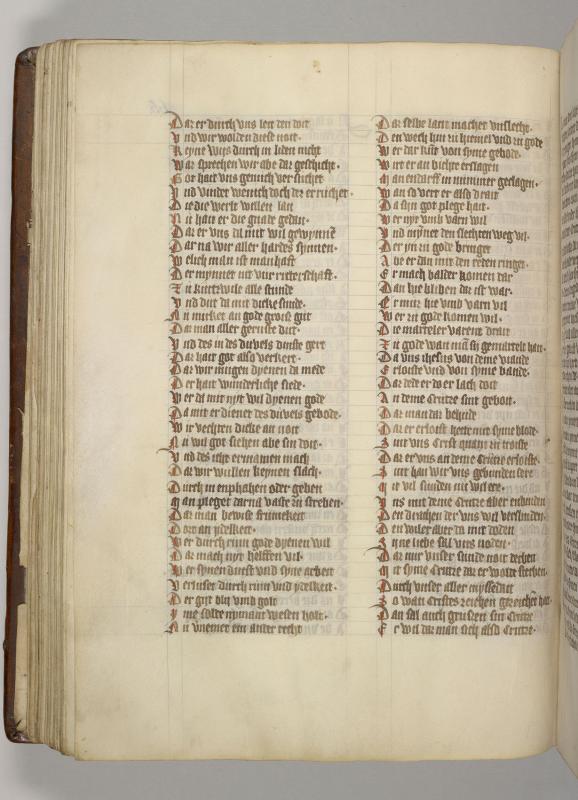 Dar er durch vns leit den dot
Vnd wir wolden diese noit
Keyne wijs durch in liden nicht
War sprechen wir abe dar geschicht
Got hait vns genuch versuchet
Vnd wenich doch der er ruchet
Die die werlt willen lan
Nu hait er die gnade gedan
Dar er vns dil mit wil gewynnen
Dar na wir aller hardes synnen
Welich man ist manhaft
Der mynnet nit wir ritterschaft
Zu kurtzwile alle stunde
Vnd duit da mit dicke sunde
Nu mircket an gode groiss gut
Dar man aller gernste duit
Vnd des in des duvels dinste gert
Dar hait got also verkert
Dar wir mugen dyenen da mede
Der hait wunderliche siede
Wer da mit nyt wil dyenen gode
Da mit er dienet des duvels gebode
Wir vechten dicke an noit
Nu wil got siehen abe sin doit
Vnd des ich ermanen mach
Dar wir wullen keynen slach
Durch in enphahen oder geben
Man pleget darna vaste zu streben
Dar man bewise frumekeit
Dorch ydelkeit
Wer durch rum gode dyenen wil
Dar mach nyt helffen vil
Wer synen dinst vnd syne arbeit
Verluset durch rum vnd ydelkeit
Der gyt bly vmb golt
Yme solde nymant wesen holt
Nu vnemet ein ander recht
Dar selbe lant machet vnslecht
Den wech hin zu hiemel vnd zu gode
Wer dar rut von syme gebode
Wirt er an bichte erslagen
Man endarff in nummer geclagen
Wan so vert er also drait
Da sin got plege hait
Wer nyt vmb varn wil
Vnd mynet den slechten weg vil
Der yn zu gode bringet
Abe er dan mit den reden ringet
Er mach balder komen dar
Dan hie bliben dat ist war
Er muz hie vmb varn vil
Wer zu gode komen wil
Die marteler varent drait
Zu gode wan man sy gemartelt hait
Da vns ihesus von deme viande
Erloiste vnd von syme bande
Dar dede er do er lach doit
An deme Crutze sint geboit
Dar man dar behude
Dar er erloist hette mit syme blode
Zuit vns Crist quam zu troiste
Dar er vns an deme Crutze erloiste
Zuit han wir vns gebunden sere
Mit vil sunden nit wil ere
Vns mit deme Crutze aber enbunden
Den drachen der vns wil verslinden
Den wil er aber da mit doden
Syne liebe sal vns noden
Dar mir vnser sunde noit derben
Mit syme Crutze dar er wolde sterben
Durch vnser aller myssedait
So wan Cristes zeichen gezeichet hait
Dan sal auch grussen sin Crutze
Er wil dar man sich also Crutze